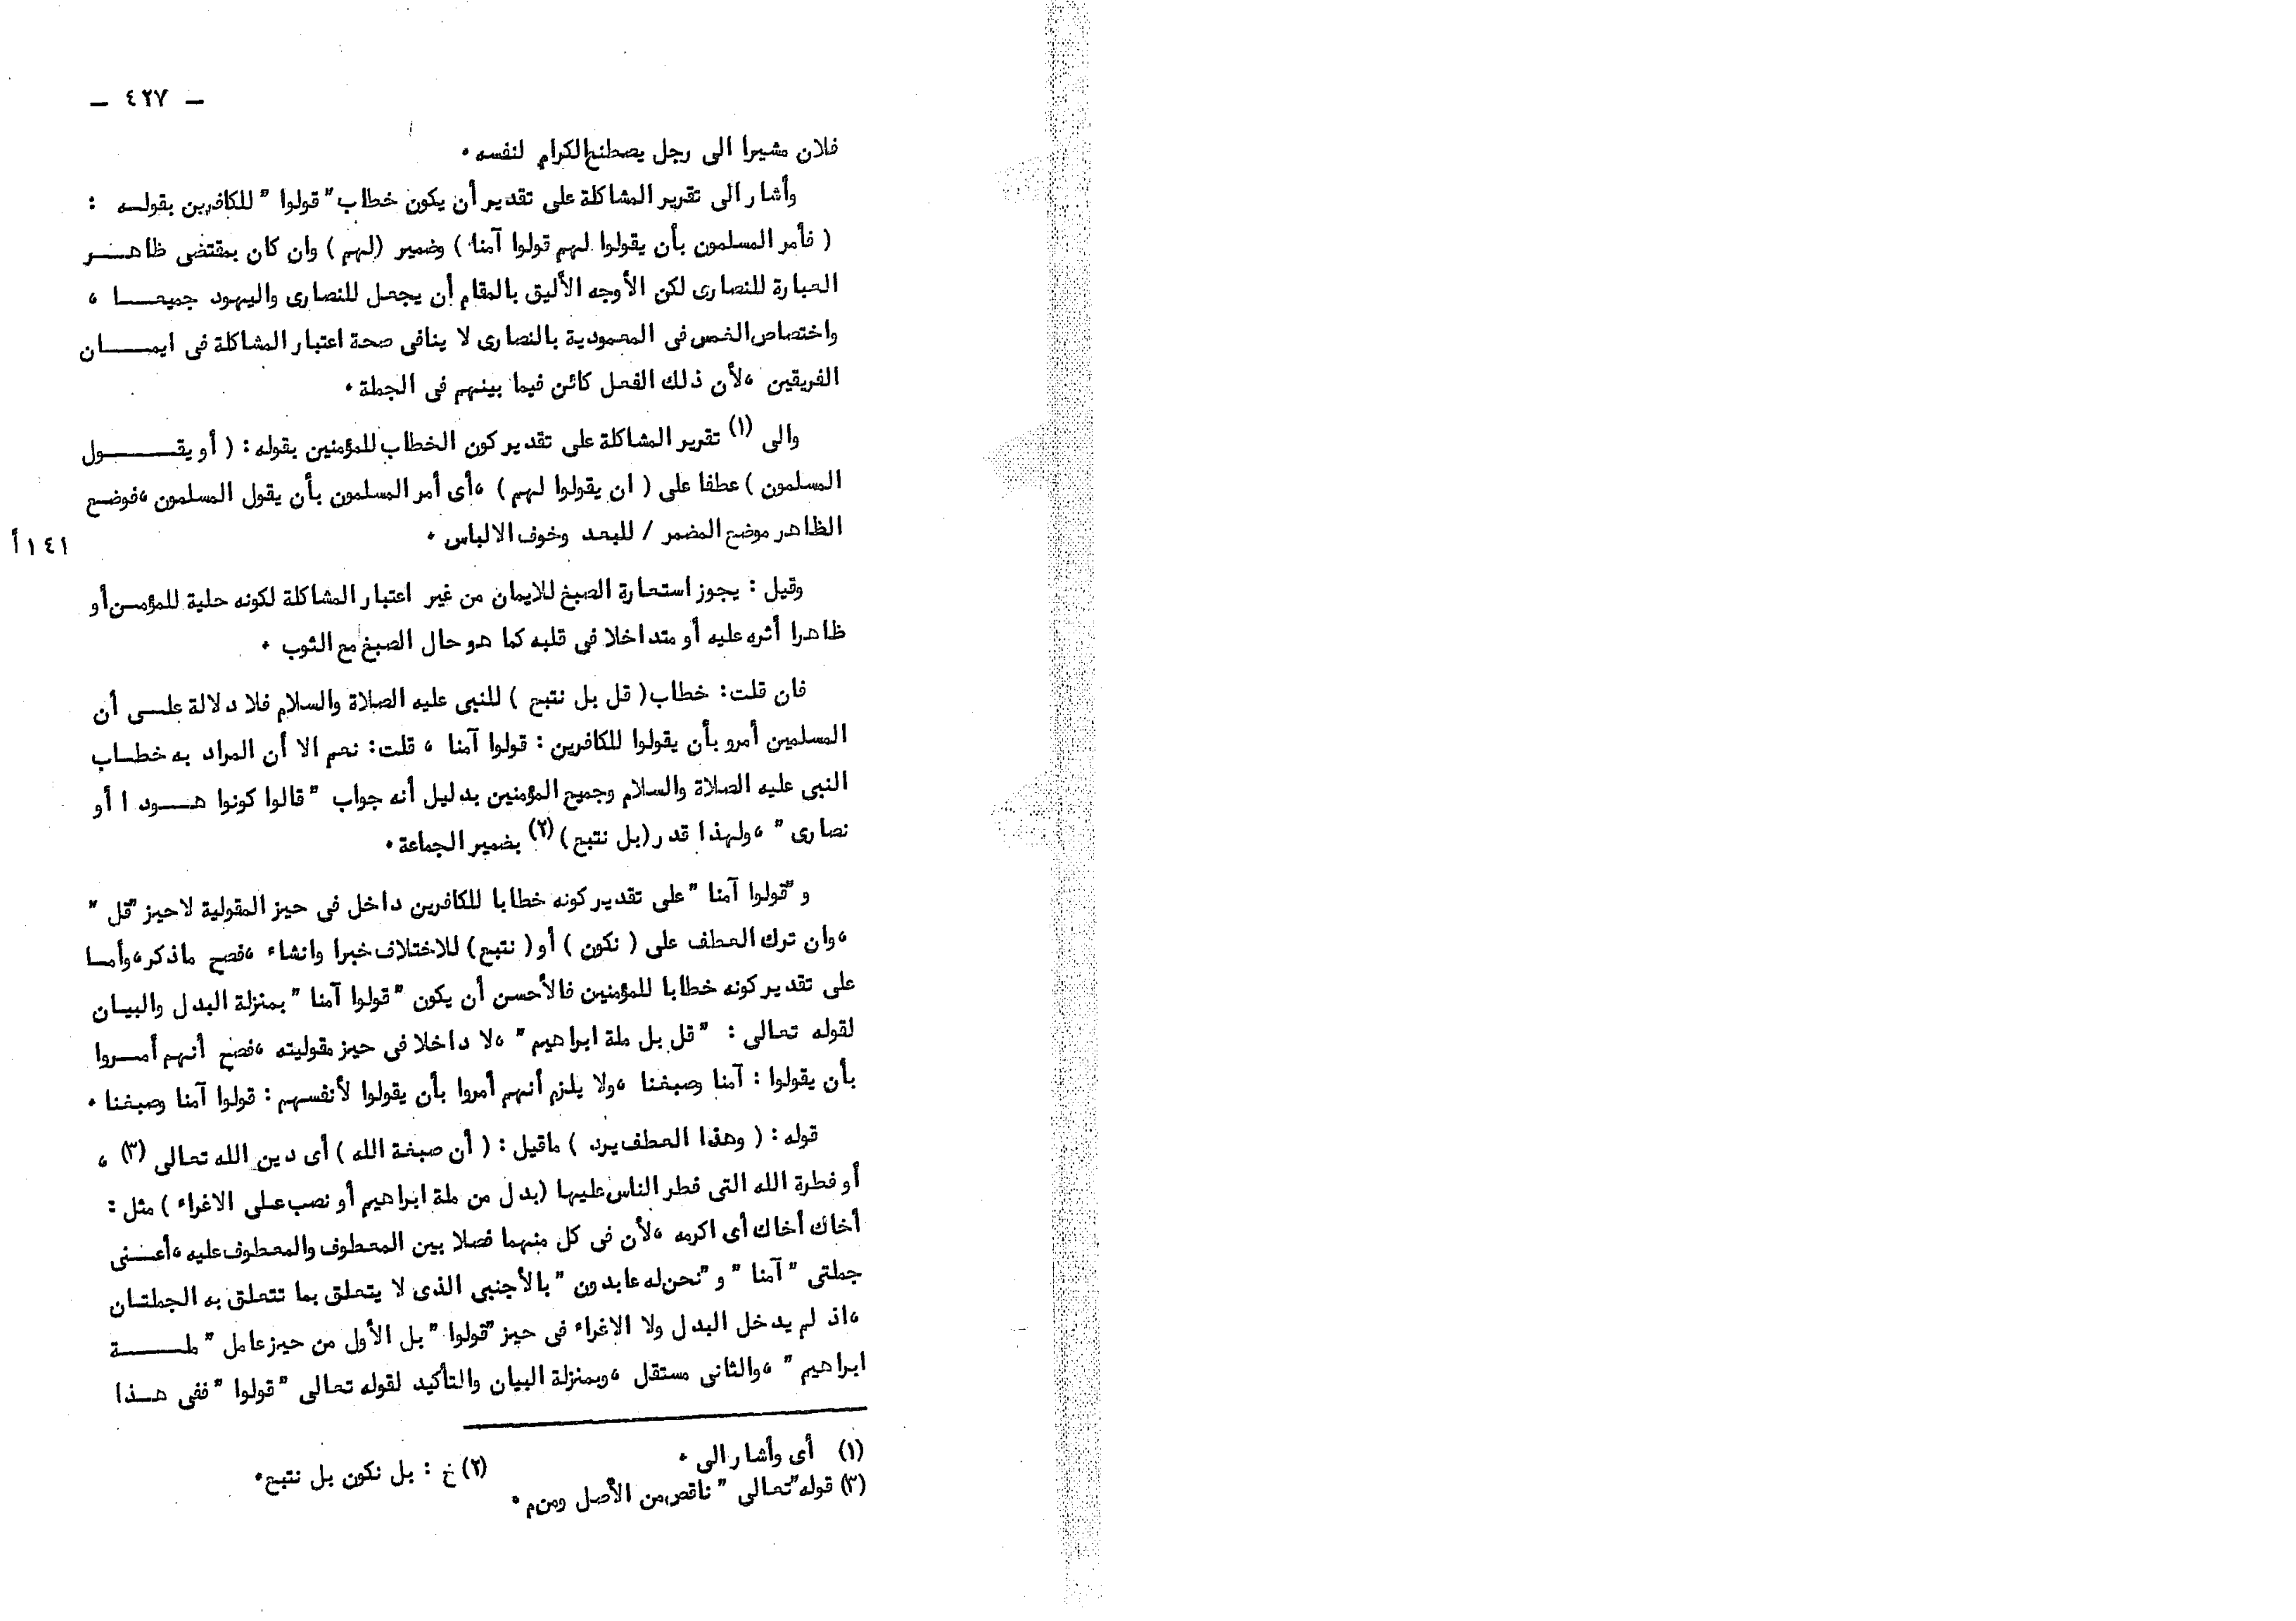 — ٤٢٧ —
فلان مشيرا الى رجل يصطنع الكرام لنفسه .
وأشار الى تقرير المشاكلة على تقدير أن يكون خطاب " قولوا " للكافرين بقولــه :
( فأمر المسلمون بأن يقولوا لهم قولوا آمنا ) وضمير (لهم ) وان كان بمقتضى ظاهــر
العبارة للنصارى لكن الأوجه الأليق بالمقام أن يجعل للنصارى واليهود جميعــا ،
واختصاص الغمس فى المعمودية بالنصارى لا ينافى صحة اعتبار المشاكلة فى ايمــان
الفريقين ،لأن ذلك الفعل كائن فيما بينهم فى الجملة .
والى (١) تقرير المشاكلة على تقدير كون الخطاب للمؤمنين بقوله : ( أو يقــول
المسلمون ) عطفا على ( ان يقولوا لهم ) ،أى أمر المسلمون بأن يقول المسلمون ،فوضع
الظاهر موضع المضمر / للبعد وخوف الالباس .
١٤١أ
وقيل : يجوز استعارة الصبغ للايمان من غير اعتبار المشاكلة لكونه حلية للمؤمــن أو
ظاهرا أثره عليه أو متداخلا فى قلبه كما هو حال الصبغ مع الثوب .
فان قلت : خطاب ( قل بل نتبع ) للنبى عليه الصلاة والسلام فلا دلالة علــى أن
المسلمين أمرو بأن يقولوا للكافرين : قولوا آمنا ، قلت : نعم الا أن المراد به خطــاب
النبى عليه الصلاة والسلام وجميع المؤمنين بدليل أنه جواب " قالوا كونوا هــودا أو
نصارى " ،ولهذا قدر (بل نتبع ) (٢) بضمير الجماعة .
و "قولوا آمنا " على تقدير كونه خطابا للكافرين داخل فى حيز المقولية لا حيز "قل "
،وان ترك العطف على ( نكون ) أو ( نتبع ) للاختلاف خبرا وانشاء ،فصح ماذكر ،وأمــا
على تقدير كونه خطابا للمؤمنين فالأحسن أن يكون " قولوا آمنا " بمنزلة البدل والبيــان
لقوله تعالى : " قل بل ملة ابراهيم " ،لا داخلا فى حيز مقوليته ،فصح أنهم أمــروا
بأن يقولوا : آمنا وصبغنا ،ولا يلزم أنهم أمروا بأن يقولوا لأنفسهم : قولوا آمنا وصبغنا .
قوله : ( وهذا العطف يرد ) ماقيل : ( أن صبغة الله ) أى دين الله تعالى (٣) ،
أو فطرة الله التى فطر الناس عليها (بدل من ملة ابراهيم أو نصب على الاغراء ) مثل :
أخاك أخاك أى اكرمه ،لأن فى كل منهما فصلا بين المعطوف والمعطوف عليه ،أعــنى
جملتى " آمنا " و "نحن له عابدون " بالأجنبى الذى لا يتعلق بما تتعلق به الجملتــان
،اذ لم يدخل البدل ولا الاغراء فى حيز "قولوا " بل الأول من حيز عامل " ملــة
ابراهيم " ،والثانى مستقل ،وبمنزلة البيان والتأكيد لقوله تعالى " قولوا " ففى هــذا
(١) أى وأشار الى .
(٢) خ : بل نكون بل نتبع .
(٣) قوله "تعالى " ناقص من الأصل ومن م .